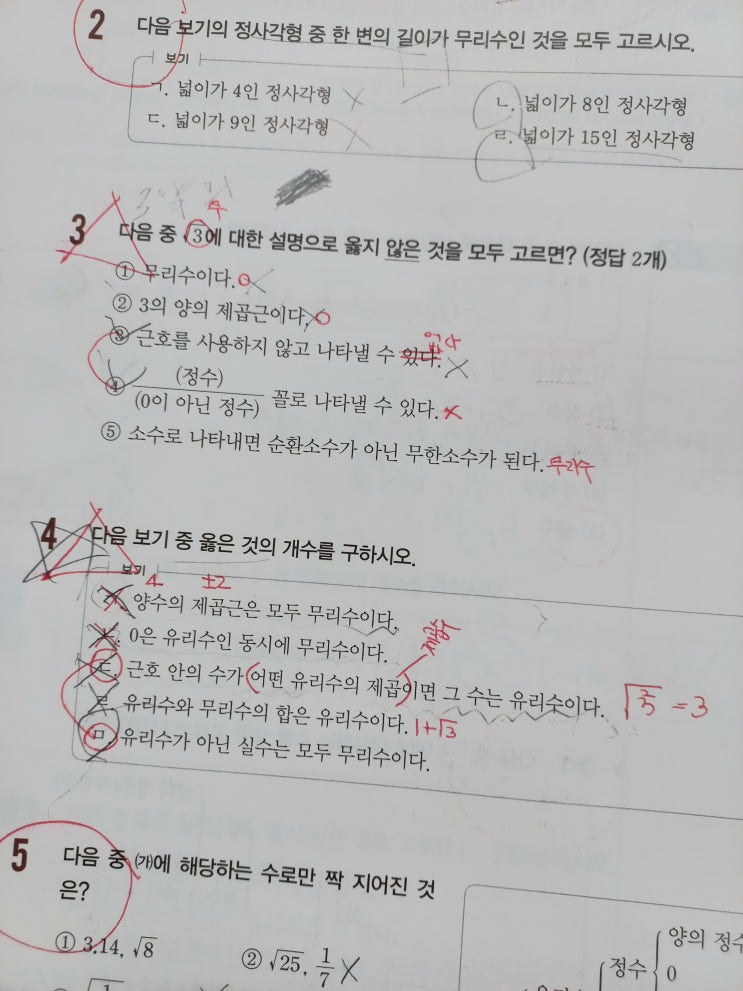 2 다음 보기의 정사각형 중 한 변의 길이가 무리수인 것을 모두 고르시오.
보기
ㄱ. 넓이가 4인 정사각형 ㄴ. 넓이가 8인 정사각형
ㄷ. 넓이가 9인 정사각형 ㄹ. 넓이가 15인 정사각형
3 다음 중 √3에 대한 설명으로 옳지 않은 것을 모두 고르면? (정답 2개)
① 무리수이다.
② 3의 양의 제곱근이다.
③ 근호를 사용하지 않고 나타낼 수 있다. 없다
④ (정수)/(0이 아닌 정수) 꼴로 나타낼 수 있다.
⑤ 소수로 나타내면 순환소수가 아닌 무한소수가 된다. 무리수
4 다음 보기 중 옳은 것의 개수를 구하시오.
보기 4 ±2
ㄱ. 양수의 제곱근은 모두 무리수이다.
ㄴ. 0은 유리수인 동시에 무리수이다. 제곱수
ㄷ. 근호 안의 수가 어떤 유리수의 제곱이면 그 수는 유리수이다. = 3
ㄹ. 유리수와 무리수의 합은 유리수이다. 1+√3
ㅁ. 유리수가 아닌 실수는 모두 무리수이다.
5 다음 중 ㈎에 해당하는 수로만 짝 지어진 것
은?
① 3.14, √8 ② √25, 1/7
정수 양의 정수
0